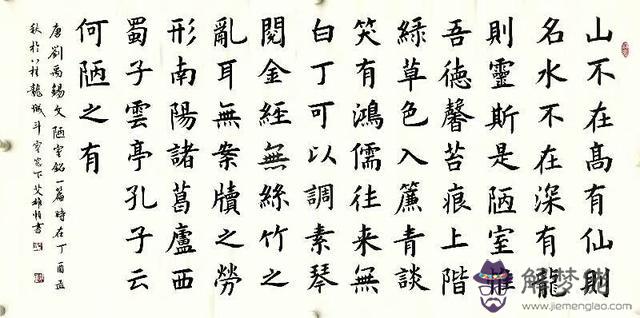 山不在髙有仙則
名水不在深有龍
則靈斯是陋室惟
吾徳馨苔痕上階
綠草色入簾青談
笑有鴻儒往來無
白丁可以調素琴
閱金經無絲竹之
亂耳無案牘之勞
形南陽諸葛廬西
蜀子雲亭孔子云
何陋之有
唐劉禹錫文陋室銘一篇時在丁酉孟
秋於八桂龍城斗室窗下書
解梦佬
https://www.jiemenglao.com/